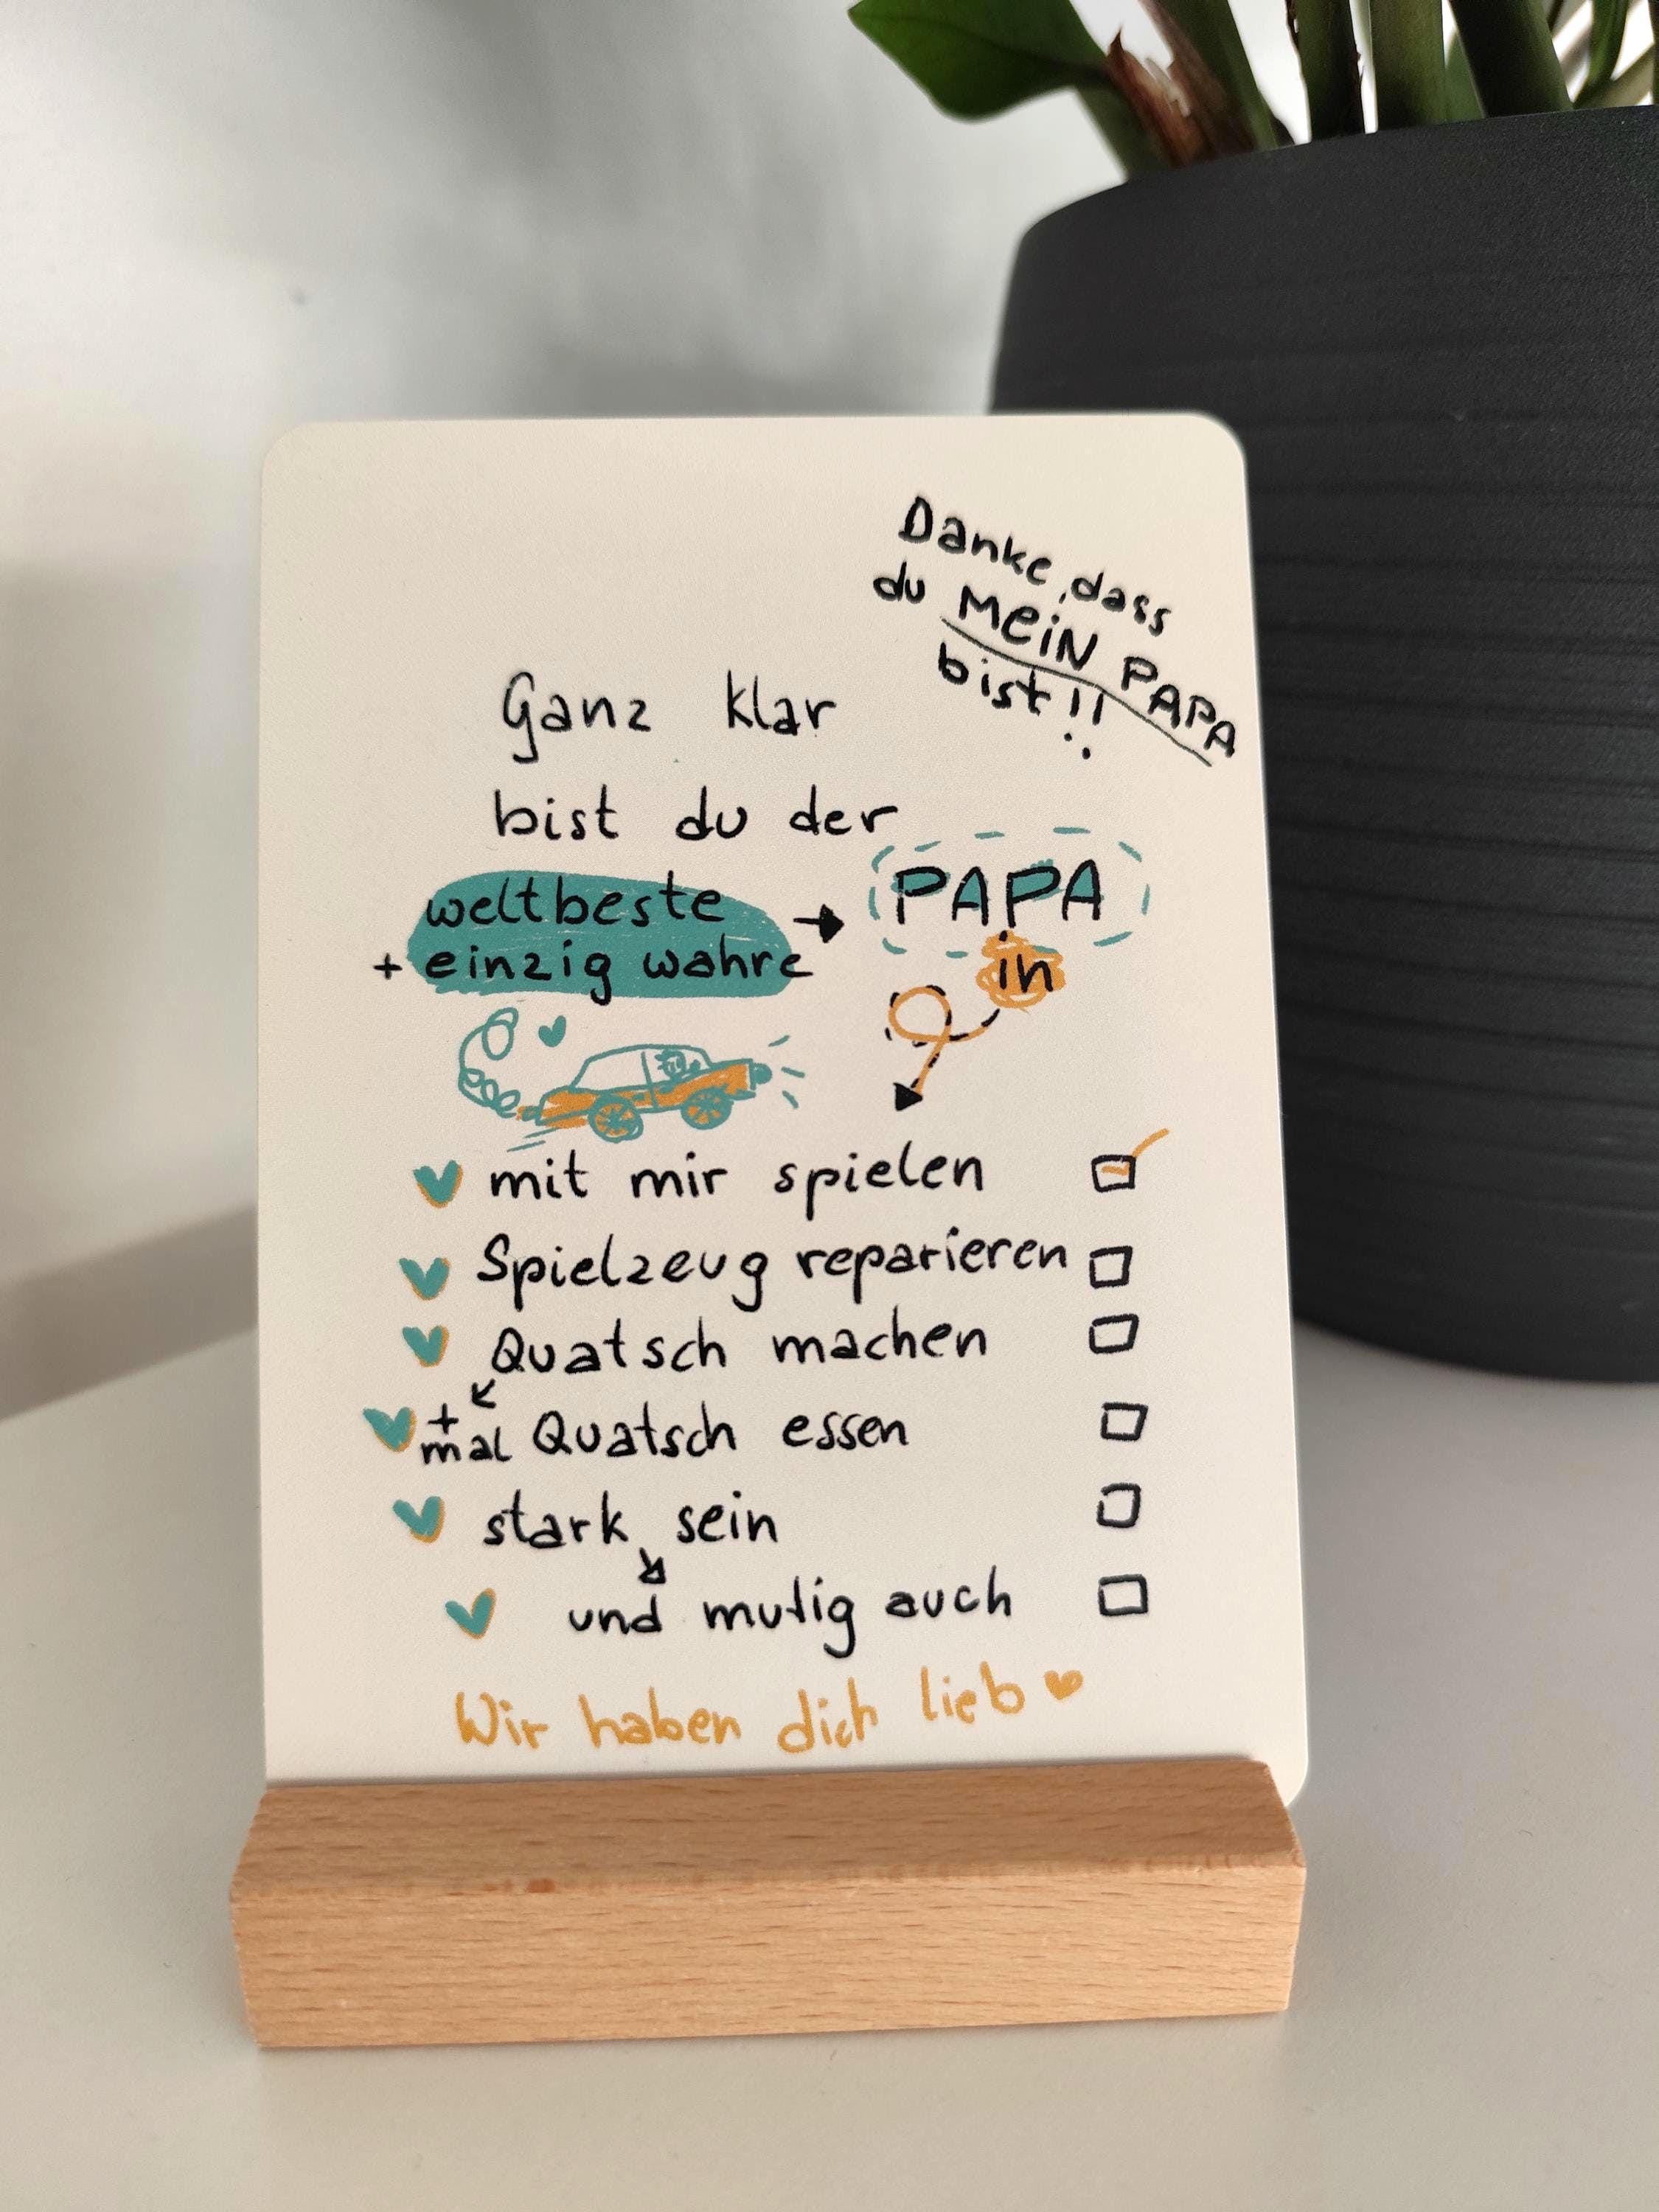 Danke, dass
du MEiN PAPA
bist!!
Ganz klar
bist du der
weltbeste → PAPA
+ einzig wahre
in
mit mir spielen
Spielzeug reparieren
Quatsch machen
+ mal Quatsch essen
stark sein
und mutig auch
Wir haben dich lieb